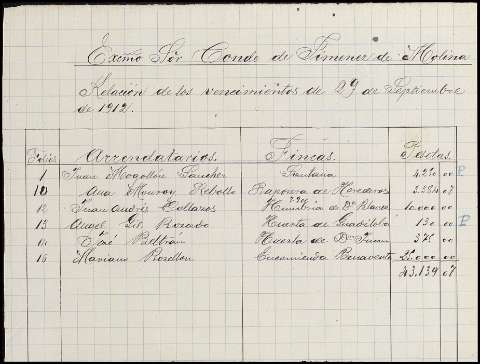 Exmo Sr Conde de Jimenez de Molina
Relación de los vencimientos de 29 de Septiembre
de 1912.
Folios Arrendatarios. Fincas. Pesetas.
1 Juan Mogollón Sanchez 4.250 00 P
10 Ana Monroy Rebollo de Herederos 3.384 07
12 Juan Andrés Collazos de Dª 10.000 00
13 Angel Gil Rosado Huerta de Guadiloba 130 00 P
14 José Beltran Huerta de Dn Juan 375 00
16 Mariano Rosellon Encomienda Benavente 25.000 00
43.139 07